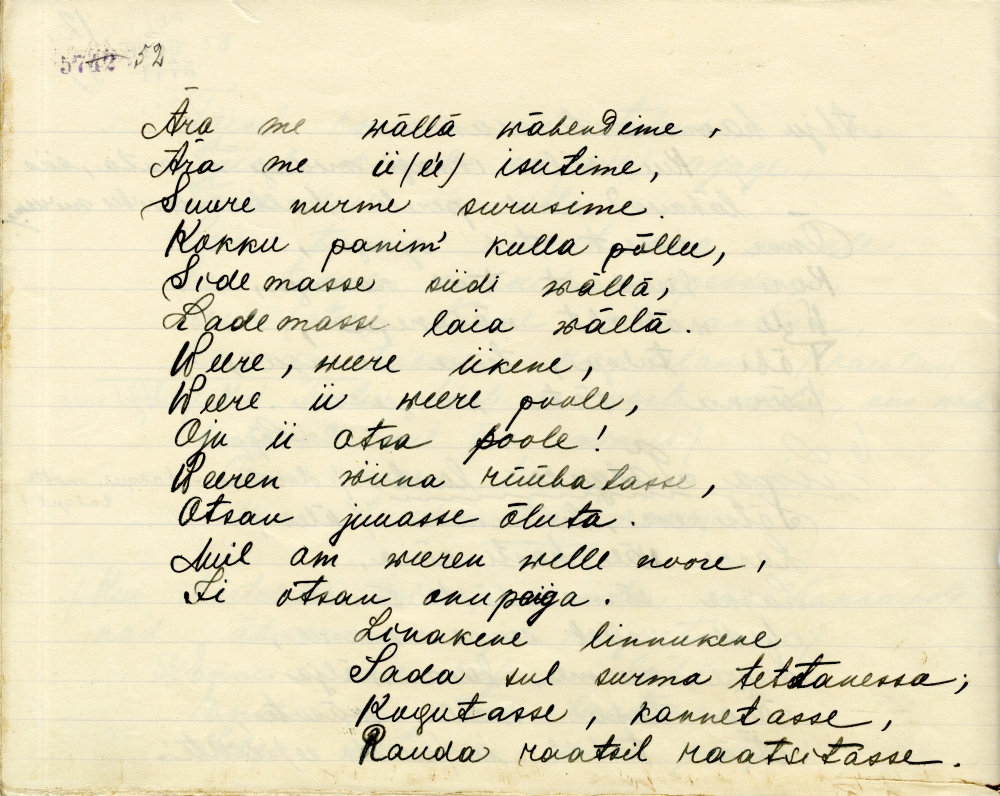 5742 52
Ära me wällä wähendime,
Ära me ii/ee/ isutime,
Suure nurme surusime.
Kokku panim' kulla põllu,
Sidemasse siidi wällä,
Lademasse laia wällä.
Weere, weere iikene,
Weere ii weere poole,
Oju ii otsa poole!
Weeren wiina rüübatasse,
Otsan juuasse õluta.
Muil om weeren welle noore,
Li otsan onupoiga.
Linakene linnukene
Sada sul surma tettanessa;
Kogutasse, kannetasse,
Rauda raatsil raatsitasse.